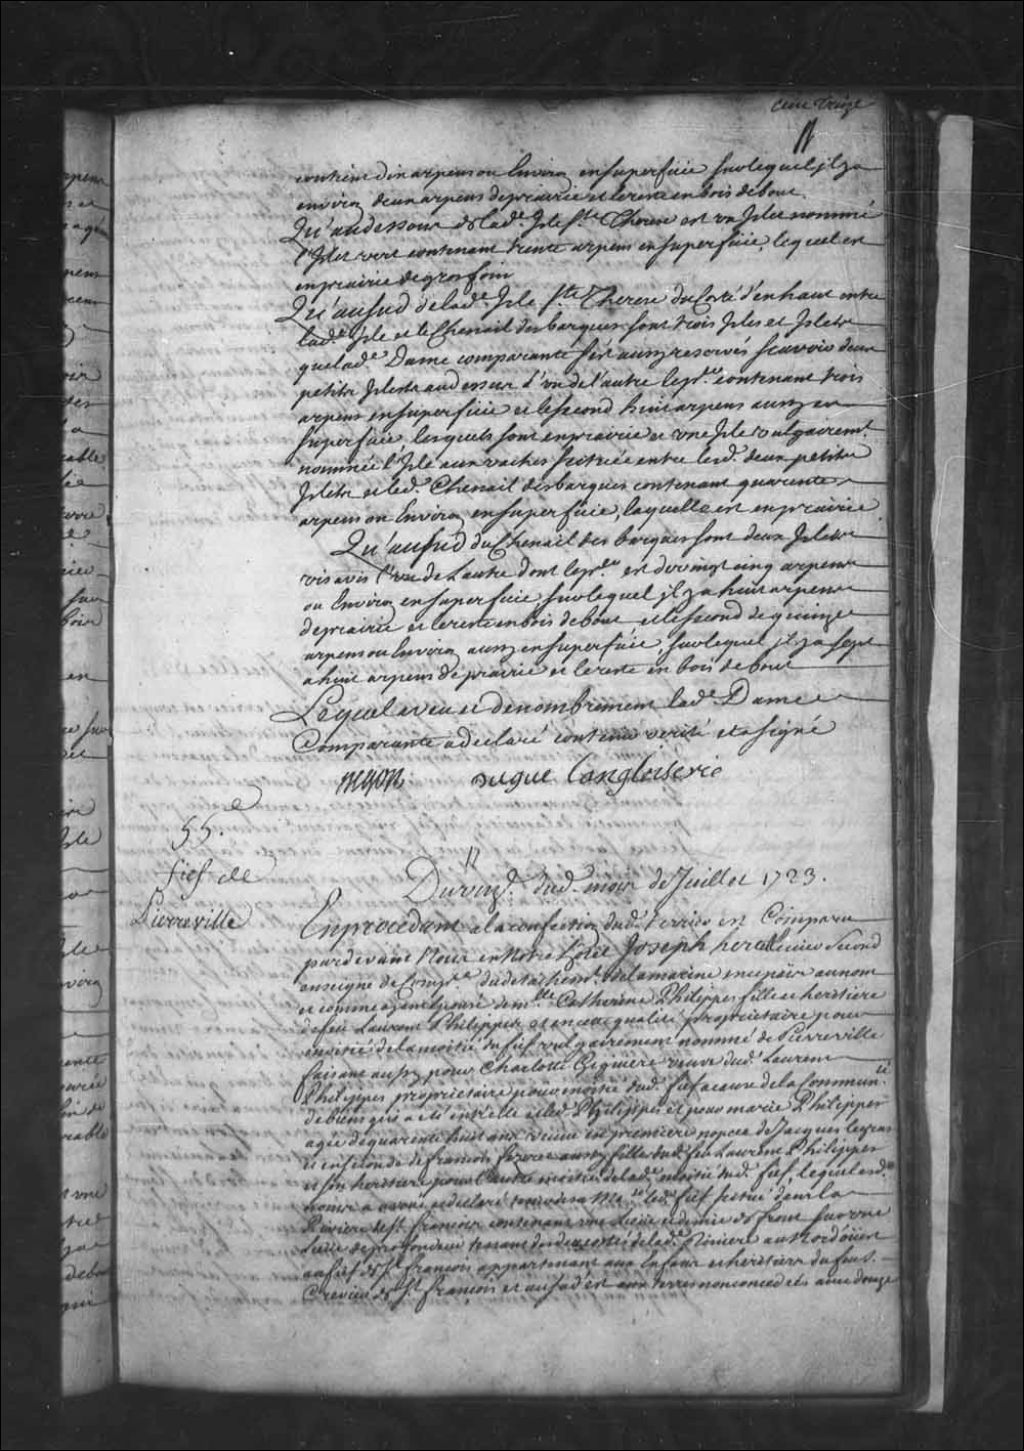 cent treize
contient dix arpens ou Environ en superficie sur lequel il y a
environ deux arpens de prairie et le reste en bois debout.
Qu'au dessous de lad.e Isle S.te Therese est un Islet nommé
l'Islet vert contenant trente arpens en superficie, lequel est
en prairie de gros foin
Qu'au sud de lad.e Isle S.te Therese du Costé d'en haut entre
lad.e Isle et le Chenail des barques sont trois Isles et Islets
que lad.e Dame comparante s'est aussy reservés scavoir deux
petits Islets au dessus l'un de l'autre le pr.er contenant trois
arpens en superficie et le second huit arpens aussy en
superficie, lesquels sont en prairie et une Isle vulgairem.t
nommée l'Isle aux vaches scituée entre lesd. deux petits
Islets et led. Chenail des barques contenant quarente
arpens ou Environ en superficie, laquelle est en prairie
Qu'au sud du Chenail des barques sont deux Islets
vis avis l'un de l'autre dont le pr.er est de vingt cinq arpens
ou Environ en superficie sur lequel il y a huit arpens
de prairie et le reste en bois debout, et le second de quinze
arpens ou Environ aussy en superficie, sur lequel il y a sept
a huit arpens de prairie et le reste en bois debout
Lequel aveu et denombrement lad.e Dame
Comparante a declaré contenir verité et a signé
dugué Langloiserie
55.e
fief de
Pierreville
Du vingt dud. mois de Juillet 1723.
En procedant a la confection dud. Terrier est Comparu
pardevant Nous en Notre hotel Joseph hertel sieur second
enseigne de Comp.ie du detachem.t de la marine en ce païs au nom
et comme ayant epousé dem.lle Catherine Philippes fille et heritiere
de feu Laurent Philippes et en cette qualité proprietaire pour
moitié de la moitié du fief vulgairement nommé de Pierreville
faisant aussy pour Charlotte Giguiere veuve dud. Laurent
Philippes proprietaire pour moitié dud. fief a cause de la Commun.té
de biens qui a eté entr'elle et led. Philippes et pour marie Philippes
agée de quarente huit ans veuve en premiere nopces de Jacques
et en seconde de francois aussy fille dud. feu Laurent Philippes
et son heritiere pour l'autre moitié de lad.e moitié dud. fief, Lequel esd.
noms a avoué et declaré tenir de sa Ma.té led. fief scitué dans la
Riviere de S.t francois contenant une lieue et demie de front sur une
lieue de profondeur tenant des deux costés de lad.e Riviere au Nord'oüest
au fief de S.t francois appartenant aux enfans et heritiers du feu S.
Crevier de S.t françois et au sud'est aux terres non concedées avec douze